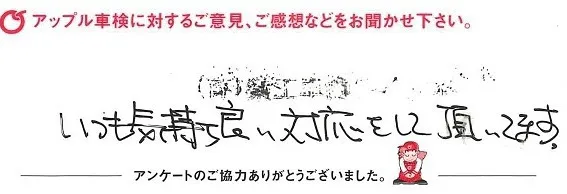 アップル車検に対するご意見、ご感想などをお聞かせ下さい。
いつも気持ち良い対応をして頂いてます。
アンケートのご協力ありがとうございました。